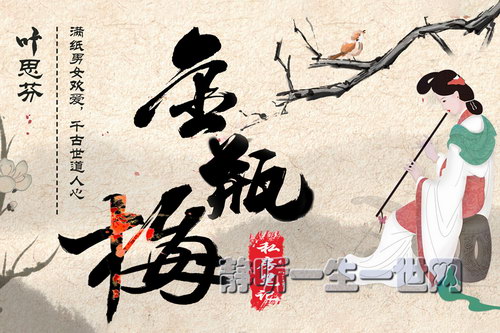 叶思芬
满纸男女欢爱,千古世道人心
金瓶梅
私事笔记
静听一生一世网